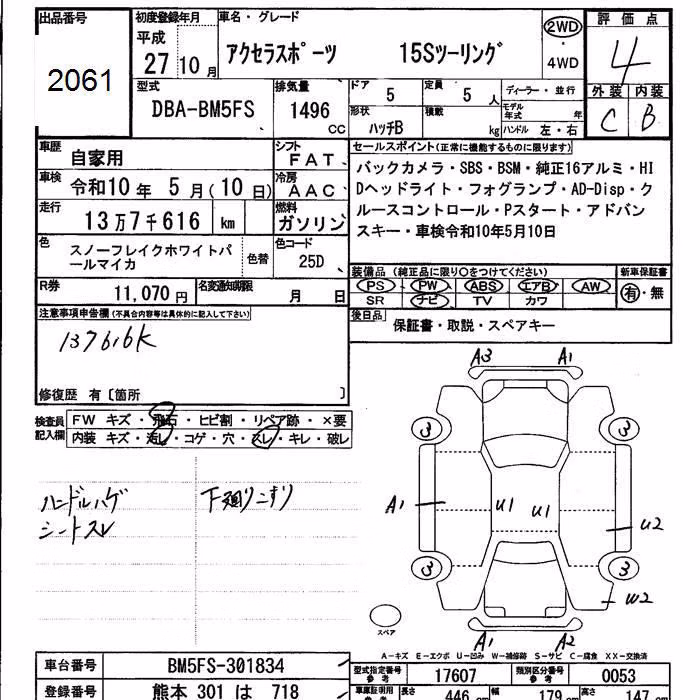 出品番号
2061
初度登録年月
平成
27年10月
車名・グレード
アクセラスポーツ 15Sツーリング
2WD
・
4WD
評価点
4
外装 内装
C B
型式
DBA-BM5FS
排気量
1496
CC
ドア
5
定員
5人
形状
ハッチB
積載
kg
ディーラー・並行
モデル年式 年
ハンドル 左・右
車歴
自家用
シフト
FAT
車検
令和10年 5月(10日)
冷房
AAC
走行
13万7千616 km
燃料
ガソリン
色
スノーフレイクホワイトパールマイカ
色替
色コード
25D
R券
11,070円
名変通知期限
月 日
セールスポイント(正常に機能するものに限ります)
バックカメラ・SBS・BSM・純正16アルミ・HI
Dヘッドライト・フォグランプ・AD-Disp・ク
ルースコントロール・Pスタート・アドバン
スキー・車検令和10年5月10日
装備品 (純正品に限り○をつけてください)
新車保証書
PS PW ABS エアB AW
SR ナビ TV カワ
有・無
後日品
保証書・取説・スペアキー
注意事項申告欄(不具合内容等は具体的に記入して下さい)
137616K
修復歴 有〔箇所 〕
検査員記入欄
FW キズ・飛石・ヒビ割・リペア跡・×要
内装 キズ・汚レ・コゲ・穴・スレ・キレ・破レ
ハンドルハゲ
シートスレ
下廻りこすり
A3 A1
3 3
A1 U1 U1 U2
3 3
W2
A1 A2
スペア
A-キズ E-エクボ U-凹み W-補修跡 S-サビ C-腐食 XX-交換済
車台番号
BM5FS-301834
登録番号
熊本 301 は 718
型式指定番号
参考
17607
類別区分番号
参考
0053
車庫証明用
参考
長さ
446 cm
幅
179 cm
高さ
147 cm